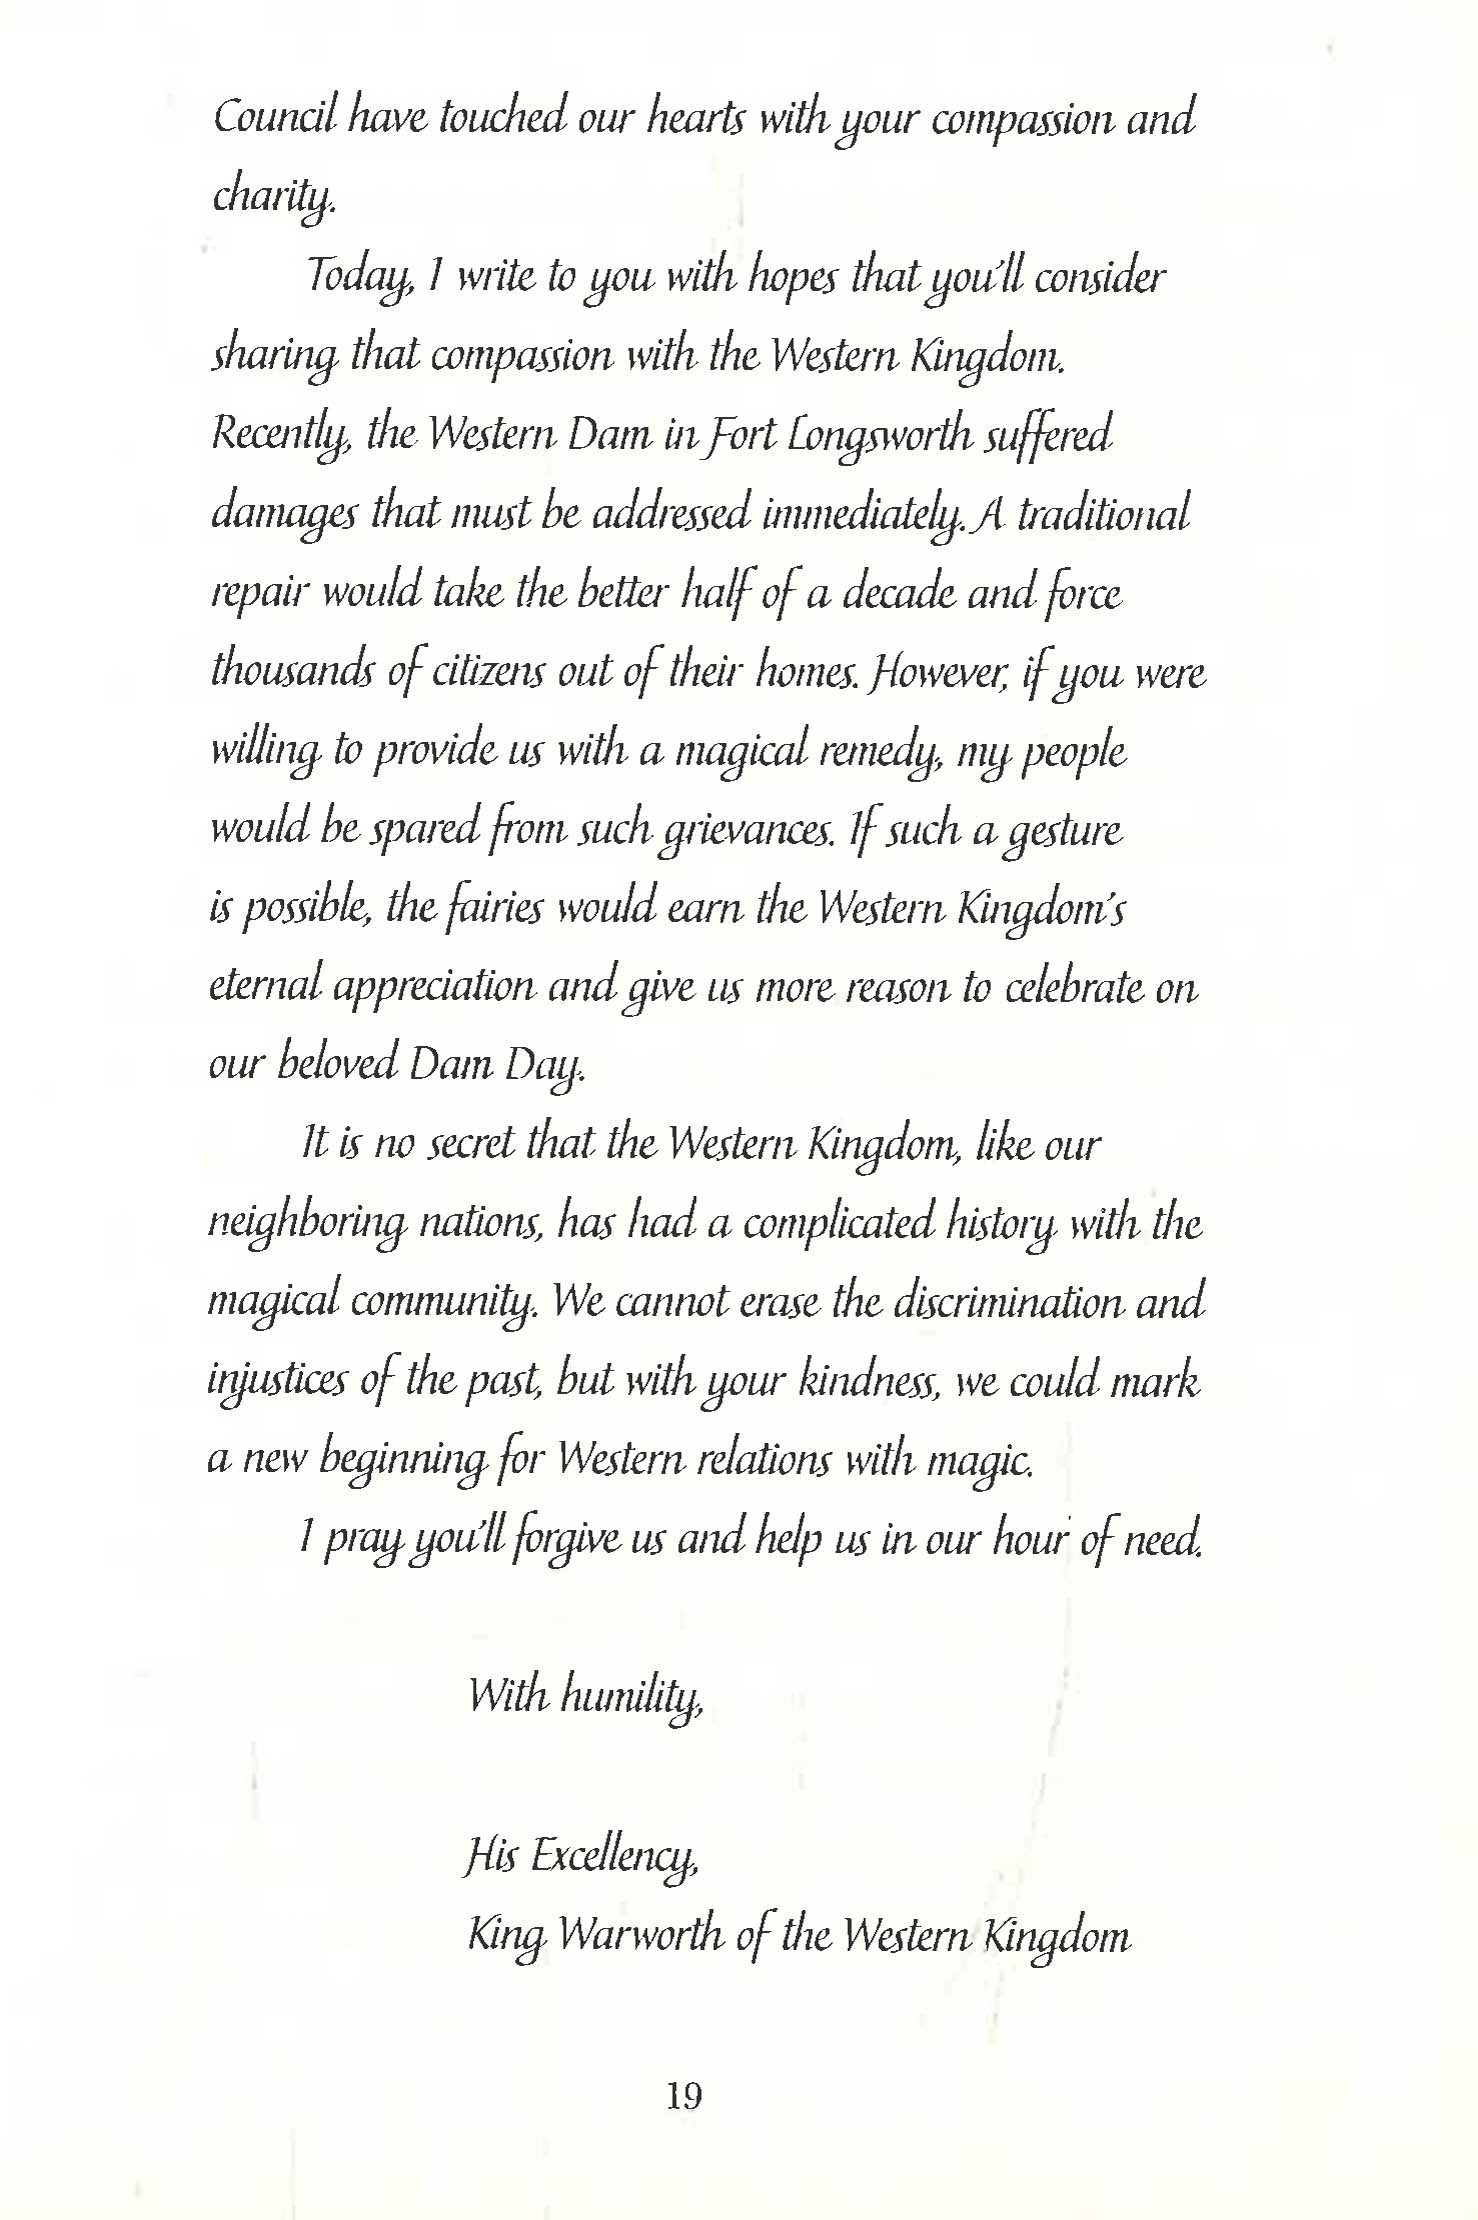 Council have touched our hearts with your compassion and
charity.
Today, I write to you with hopes that you'll consider
sharing that compassion with the Western Kingdom.
Recently, the Western Dam in Fort Longsworth suffered
damages that must be addressed immediately. A traditional
repair would take the better half of a decade and force
thousands of citizens out of their homes. However, if you were
willing to provide us with a magical remedy, my people
would be spared from such grievances. If such a gesture
is possible, the fairies would earn the Western Kingdom's
eternal appreciation and give us more reason to celebrate on
our beloved Dam Day.
It is no secret that the Western Kingdom, like our
neighboring nations, has had a complicated history with the
magical community. We cannot erase the discrimination and
injustices of the past, but with your kindness, we could mark
a new beginning for Western relations with magic.
I pray you'll forgive us and help us in our hour of need.
With humility,
His Excellency,
King Warworth of the Western Kingdom
19